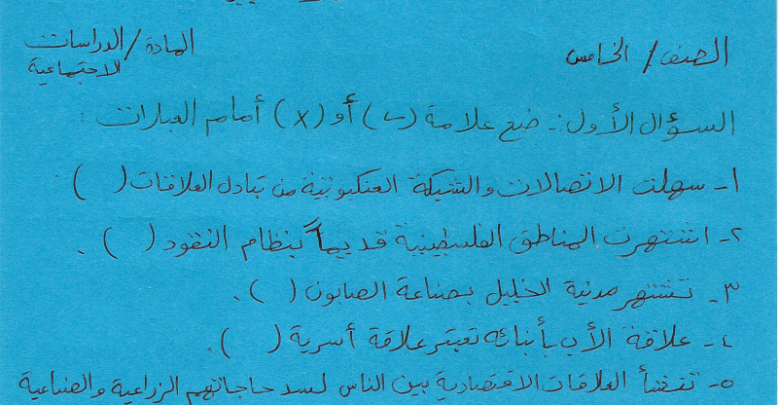 الصف / الخامس المادة / الدراسات الاجتماعية
السؤال الأول :- ضع علامة (✓) أو (x) أمام العبارات :
١- سهلت الاتصالات والشبكة العنكبوتية من تبادل العلاقات ( )
٢- اشتهرت المناطق الفلسطينية قديماً بنظام النقود ( ) .
٣- تشتهر مدينة الخليل بصناعة الصابون ( ) .
٤- علاقة الأب بأبنائه تعتبر علاقة أسرية ( ) .
٥- تنشأ العلاقات الاقتصادية بين الناس لسد حاجاتهم الزراعية والصناعية